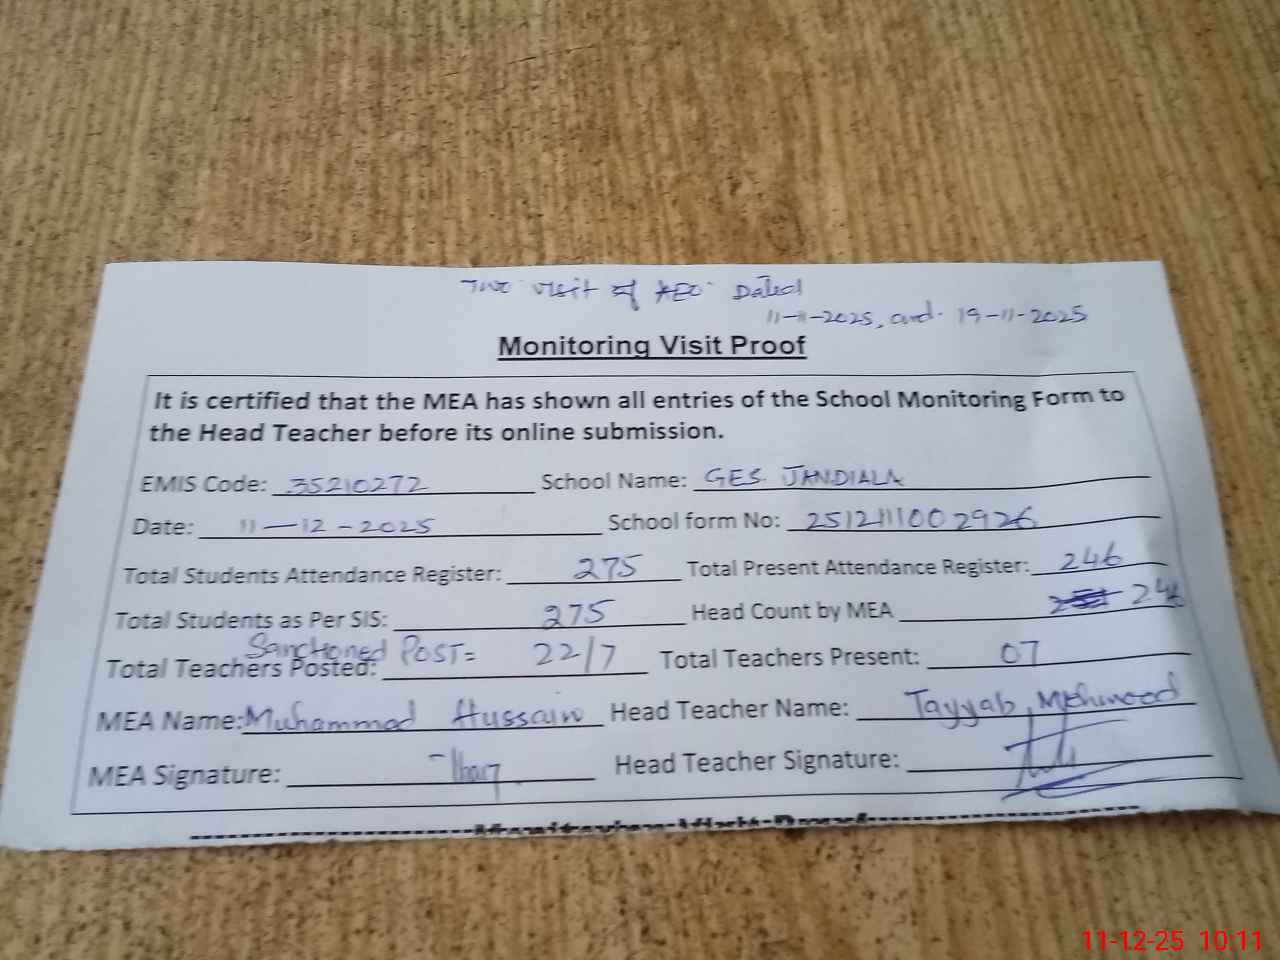 Two visit of AEO Dated
11-11-2025, and 19-11-2025
Monitoring Visit Proof
It is certified that the MEA has shown all entries of the School Monitoring Form to
the Head Teacher before its online submission.
EMIS Code: 35210272 School Name: GES. JANDIALA
Date: 11-12-2025 School form No: 2512111002926
Total Students Attendance Register: 275 Total Present Attendance Register: 246
Total Students as Per SIS: 275 Head Count by MEA 246
Sanctioned Post= 22/7
Total Teachers Posted: Total Teachers Present: 07
MEA Name: Muhammad Hussain Head Teacher Name: Tayyab Mehmood
MEA Signature: Head Teacher Signature:
Monitoring Visit Proof
11-12-25 10:11